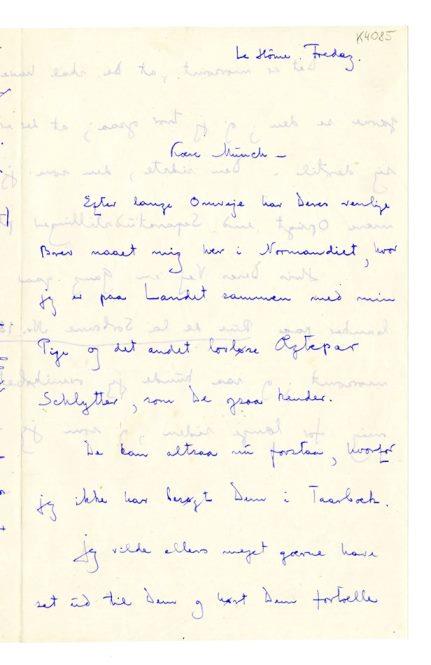 K4085
Le Hôme. Fredag.
Kære Munch –
Efter lange Omveje har Deres venlige
Brev naaet mig her i Normandiet, hvor
jeg er paa Landet sammen med min
Pige og det andet lovløse Ægtepar
Schlytter, som De ogsaa kender.
De kan altsaa nu forstaa, hvorfor
jeg ikke har besøgt Dem i Taarbæk.
Jeg vilde ellers meget gærne have
set ud til Dem og hørt Dem fortælle